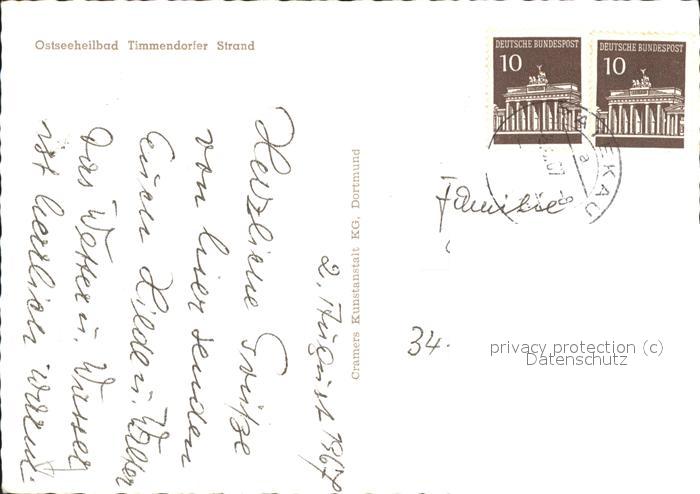 Ostseeheilbad Timmendorfer Strand
DEUTSCHE BUNDESPOST
10
DEUTSCHE BUNDESPOST
10
EKAU
a
67
2. August 1967
Herzliche Grüße
von hier senden
Euch Hilde u. Walter
Das Wetter u. Wasser
ist herrlich warm.
Cramers Kunstanstalt KG, Dortmund
Familie
34.
privacy protection (c)
Datenschutz